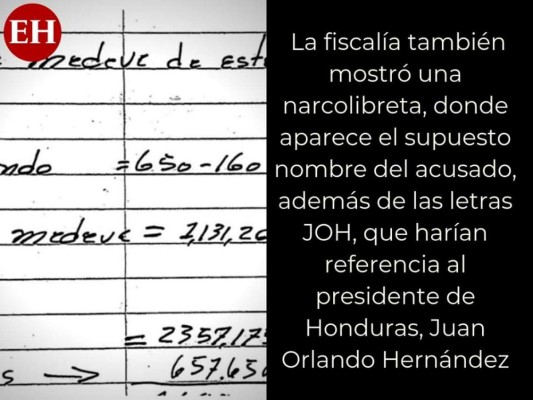 EH
medeve de est
ndo =650-160
medeve = 1,131,20
= 2357,175
s → 657.630
La fiscalía también
mostró una
narcolibreta, donde
aparece el supuesto
nombre del acusado,
además de las letras
JOH, que harían
referencia al
presidente de
Honduras, Juan
Orlando Hernández